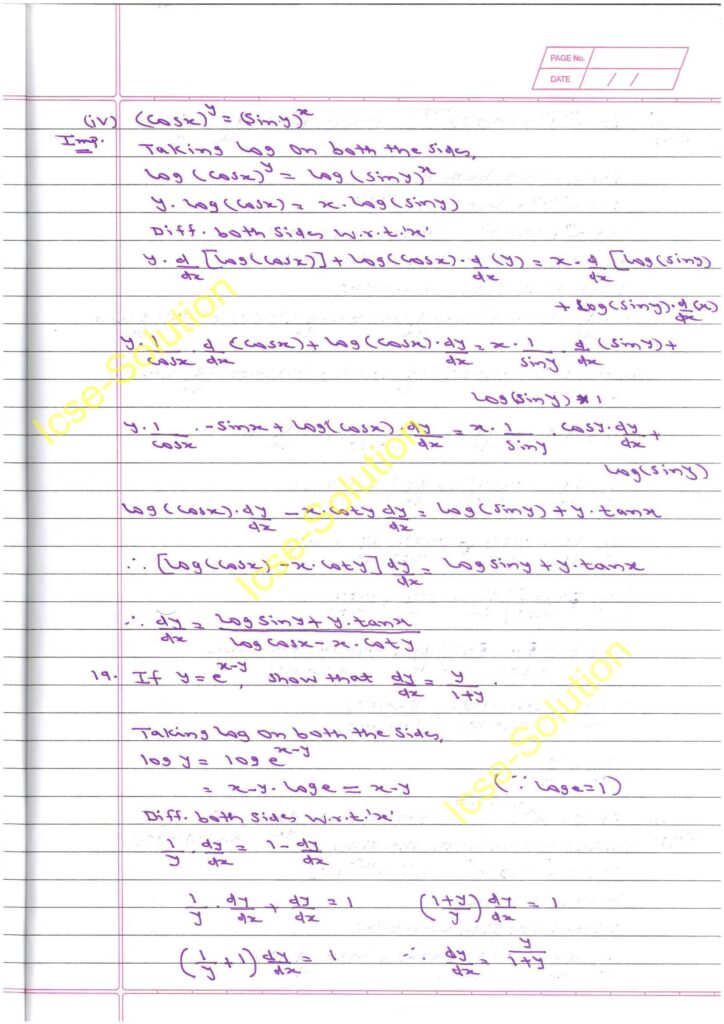 PAGE No.
DATE / /
(iv) (cosx)^y = (siny)^x
Imp. Taking log on both the sides,
log (cosx)^y = log (siny)^x
y. log (cosx) = x. log (siny)
Diff. both sides w.r.t. 'x'
y. d/dx [log (cosx)] + log (cosx). d/dx (y) = x. d/dx [log (siny)
+ log (siny). d/dx (x)
y. 1/cosx d/dx (cosx) + log (cosx). dy/dx = x. 1/siny . d/dx (siny) +
log (siny) × 1
y. 1/cosx . -sinx + log (cosx). dy/dx = x. 1/siny . cosy. dy/dx +
log (siny)
log (cosx). dy/dx - x. coty dy/dx = log (siny) + y. tanx
∴ [log (cosx) - x. coty] dy/dx = log siny + y. tanx
∴ dy/dx = log siny + y. tanx / log cosx - x. coty
19. If y = e^x-y, show that dy/dx = y/1+y .
Taking log on both the sides,
log y = log e^x-y
= x-y. log e = x-y (∵ log e = 1)
Diff. both sides w.r.t. 'x'
1/y . dy/dx = 1 - dy/dx
1/y . dy/dx + dy/dx = 1 (1+y/y) dy/dx = 1
(1/y + 1) dy/dx = 1 ∴ dy/dx = y/1+y
Icse-Solution
Icse-Solution
Icse-Solution